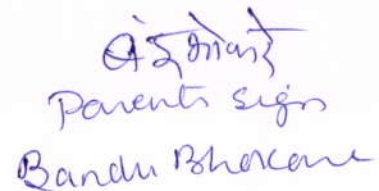 बंडू भोकरे
Parents sign
Bandu Bhokare